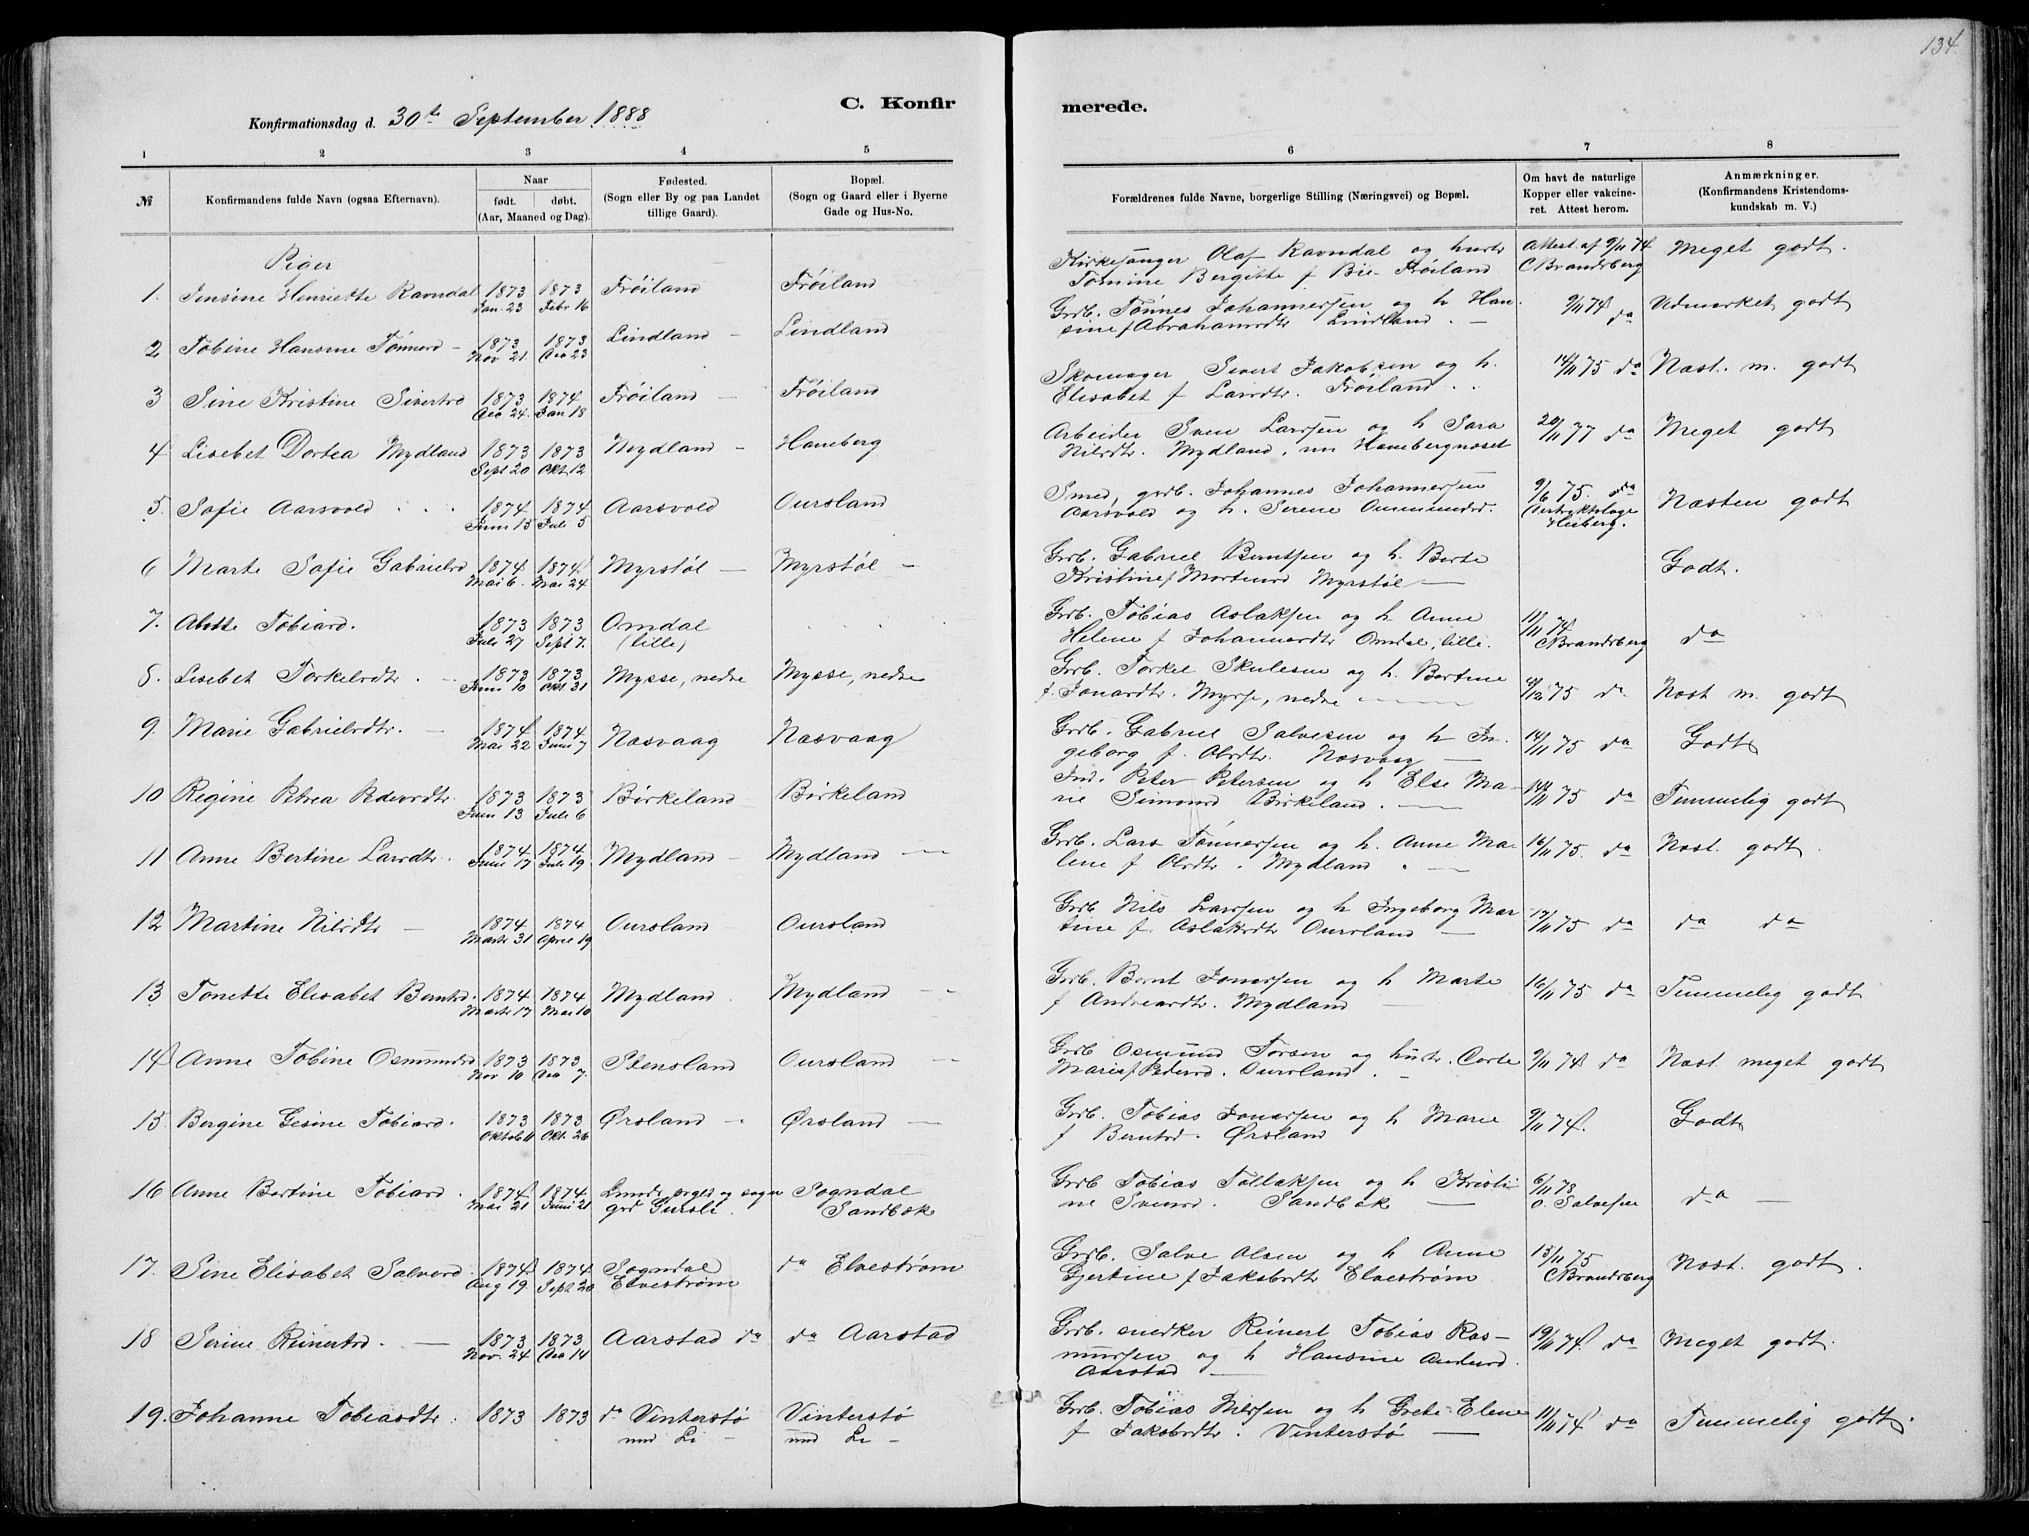 134.
C. Konfir
merede.
Konfirmationsdag d. 30te September 1888
1 2 3 4 5
6 7 8
№
Konfirmandens fulde Navn (ogsaa Efternavn).
Naar
født. døbt.
(Aar, Maaned og Dag).
Fødested.
(Sogn eller By og paa Landet
tillige Gaard).
Bopæl.
(Sogn og Gaard eller i Byerne
Gade og Hus-No.
Forældrenes fulde Navne, borgerlige Stilling (Næringsvei) og Bopæl.
Om havt de naturlige
Kopper eller vakcine-
ret. Attest herom.
Anmærkninger.
(Konfirmandens Kristendoms-
kundskab m. V.)
Piger
1. Jensine Henriette Ravndal 1873 1873 Frøiland Frøiland
Jan. 23 Febr 16
Kirkesanger Olaf Ravndal og hustr Attest af 9/11 74 Meget godt.
Tomine Bergitte f Bie Frøiland CBrandsberg
2 Tobine Hansine Tønnesd 1873 1873 Lindland Lindland
Nov 21. Dec 23
Grb. Tønnes Johannessen og h Han- 9/11 74 da Udmærket godt
sine f Abrahamsdtr Lindland.
3 Sine Kristine Sivertsd 1873 1874 Frøiland Frøiland
Dec 24. Jan 18
Skomager Sivert Jakobsen og h. 14/11 75 da Næst. m. godt
Elisabet f Larsdtr. Frøiland
4 Lisebet Dortea Mydland 1873 1873 Mydland Haneberg
Sept 20 Okt. 12
Arbeider Sven Larssen og h Sara 20/11 77 da Meget godt
Nilsdtr. Mydland, nu Hanebergnæset
5. Sofie Aarsvold 1874 1874 Aarsvold Oursland
Juni 15 Juli 5
Smed, grdb. Johannes Johannessen 9/6 75. Næsten godt
Aarsvold og h. Serene Ommundsd. Heiberg.
6 Marte Sofie Gabrielsd 1874 1874 Myrstøl Myrstøl
Mai 6. Mai 24
Grb. Gabriel Berntsen og h. Berte Godt.
Kristine f Mortensd Myrstøl
7. Abette Tobiasd. 1873 1873 Omdal
Juli 27 Sept 7. (lille)
Grb. Tobias Aslaksen og h Anne 11/11 74 da
Helene f Johannesdtr Omdal, lille. CBrandsberg
8. Lisebet Torkelsdtr 1873 1873 Mysse, nedre Mysse, nedre
Juni 10 Okt 31
Grb. Torkel Skulesen og h. Bertine 75 da Næst m. godt
f. Jonasdtr. Mysse, nedre
9. Marie Gabrielsdtr. 1874 1874 Næsvaag Næsvaag
Mai 22 Juni 7
Grb. Gabriel Salvesen og h In- 14/11 75 da Godt
geborg f. Olsdtr. Næsvaag
10 Regine Petrea Pedersdtr. 1873 1873 Birkeland Birkeland
Juni 13 Juli 6
Ind. Peter Petersen og h Else Ma- 14/11 75 da Temmelig godt
rie Simonsd Birkeland.
11 Anne Bertine Larsdtr. 1874 1874 Mydland Mydland
Juni 17 Juli 19
Grb. Lars Tønnessen og h. Anne Ma- 16/11 75. da Næst. godt.
lene f Olsdtr. Mydland
12 Martine Nilsdtr 1874 1874 Oursland Oursland
Marts 31 April 19
Grb Nils Larssen og h Ingeborg Mar- 17/11 75 da da da
tine f. Aslaksdtr Oursland
13 Tonette Elisabet Berntsd. 1874 1874 Mydland Mydland
Marts 17 Mai 10
Grb. Bernt Jonassen og h Marte 16/11 75 da Temmelig godt
f Andreasdtr. Mydland
14 Anne Tobine Osmundsd 1873 1873 Stensland Oursland
Nov 10 Dec 7.
Grb Osmund Torsen og hustr. Berte 9/11 74 da Næst. meget godt
Marie f Pedersd. Oursland.
15 Bergine Gesine Tobiasd. 1873 1873 Ørsland Ørsland
Oktob 11 Okt. 26
Grb. Tobias Jonassen og h Marie 9/11 74. Godt
f Berntsd. Ørsland
16 Anne Bertine Tobiasd. 1874 1874 Sogndal
Mai 21 Juni 21 grd Sandbæk
Grb Tobias Tollaksen og h Kristi- 6/11 78 da
ne Svensd. Sandbæk O. Salvesen
17. Sine Elisabet Salvesd 1874 1874 Sogndal da Elvestrøm
Aug 19. Sept 20 Elvestrøm
Grdb. Salve Olsen og h Anne 13/11 75 Næst. godt.
Gjertine f Jakobsdtr Elvestrøm CBrandsberg
18 Serine Reinertsd. 1873 1873 Aarstad da da Aarstad
Nov. 24 Dec 14
Grdb. snedker Reinert Tobias Ras- 19/11 74. da Meget godt.
mussen og h Hansine Andersd.
Aarstad
19. Johanne Tobiasdtr. 1873 1873 da Vinterstø Vinterstø
und Li und Li
Grb. Tobias Nilssen og h Grete Elene 11/11 74 da Temmelig godt.
f Jakobsdtr. Vinterstø